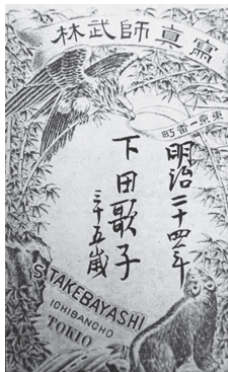 寫真師武林
東京一番町
明治二十四年
下田歌子
三十五歳
S. TAKEBAYASHI
ICHIBANCHO
TOKIO